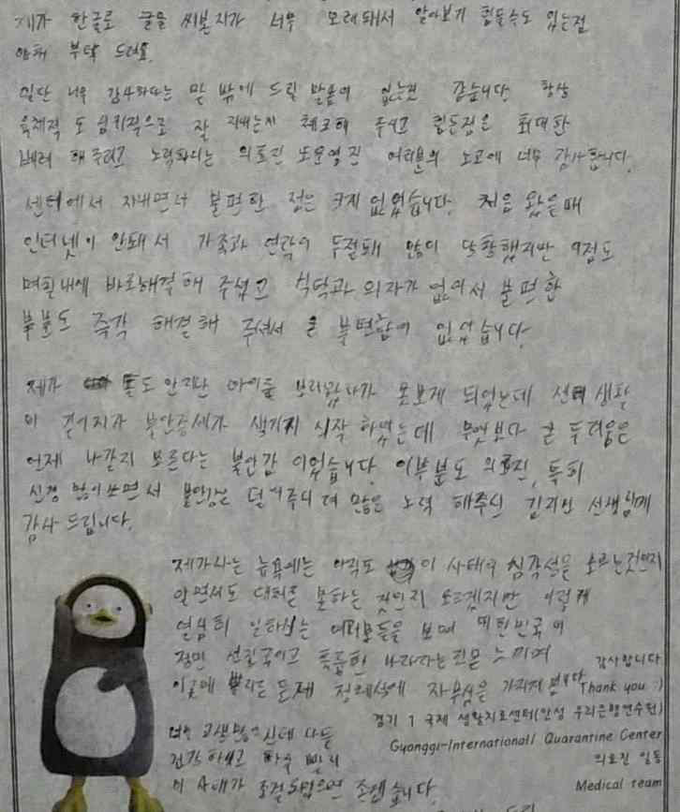 제가 한글로 글을 써본지가 너무 오래돼서 알아보기 힘들수도 있는점
양해 부탁 드려요.
일단 너무 감사하다는 말 밖에 드릴 말씀이 없는것 같습니다. 항상
육체적 도 심리적으로 잘 지내는지 체크해 주시고 힘든점은 최대한
배려 해주려고 노력하시는 의료진 또 운영진 여러분의 노고에 너무 감사합니다.
센터에서 지내면서 불편한 점은 크게 없었습니다. 처음 왔을때
인터넷이 안돼서 가족과 연락이 두절돼 많이 당황했지만 이점도
며칠내에 바로해결해 주셨고 식탁과 의자가 없어서 불편한
부분도 즉각 해결해 주셔서 큰 불편함이 없었습니다.
제가 돌도 안지난 아이를 보러왔다가 못보게 되었는데 센터 생활
이 길어지자 불안증세가 생기기 시작 하였는데 무엇보다 큰 두려움은
언제 나갈지 모른다는 불안감 이었습니다. 이부분도 의료진, 특히
신경 많이쓰면서 불안감을 덜어주시려 많은 노력 해주신 김지민 선생님께
감사 드립니다.
제가사는 뉴욕에는 아직도 이 사태의 심각성을 모르는것인지
알면서도 대처를 못하는 것인지 모르겠지만 이렇게
열심히 일하시는 여러분들을 보며 대한민국이
정말 선진국이고 훌륭한 나라라는것을 느끼며
이곳에 뿌리를 둔제 정체성에 자부심을 가지게 됩니다.
감사합니다
Thank you :)
경기 1 국제 생활치료센터(안성 우리은행연수원)
Gyonggi-International1 Quarantine Center
의료진 일동
Medical team
고생많으신데 다들
건강 하시고 하루 빨리
이 사태가 종결되었으면 좋겠습니다.
드림